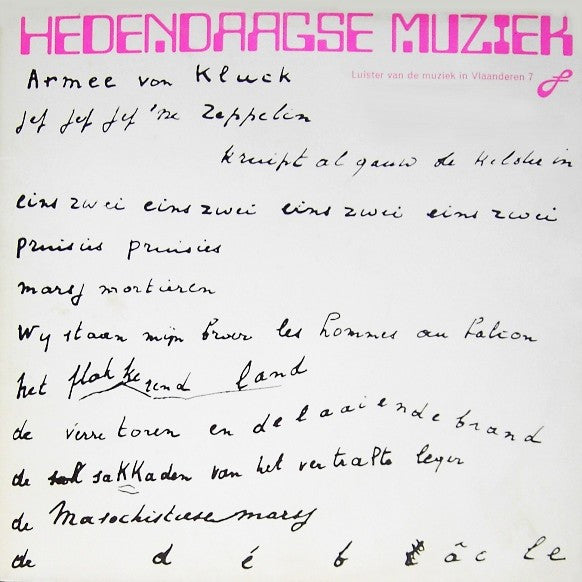 HEDENDAAGSE MUZIEK
Luister van de muziek in Vlaanderen 7
Armee von Kluck
Jef Jef Jef 'ne Zeppelin
kruipt al gauw de kelder in
eins zwei eins zwei eins zwei eins zwei
pruisies pruisies
marsj mortieren
Wy staan mijn broer les hommes au talion
het flakkerend land
de verre toren en de laaiende brand
de sakkaden van het vertrapte leger
de Masochistiese marsj
de d é b âcle